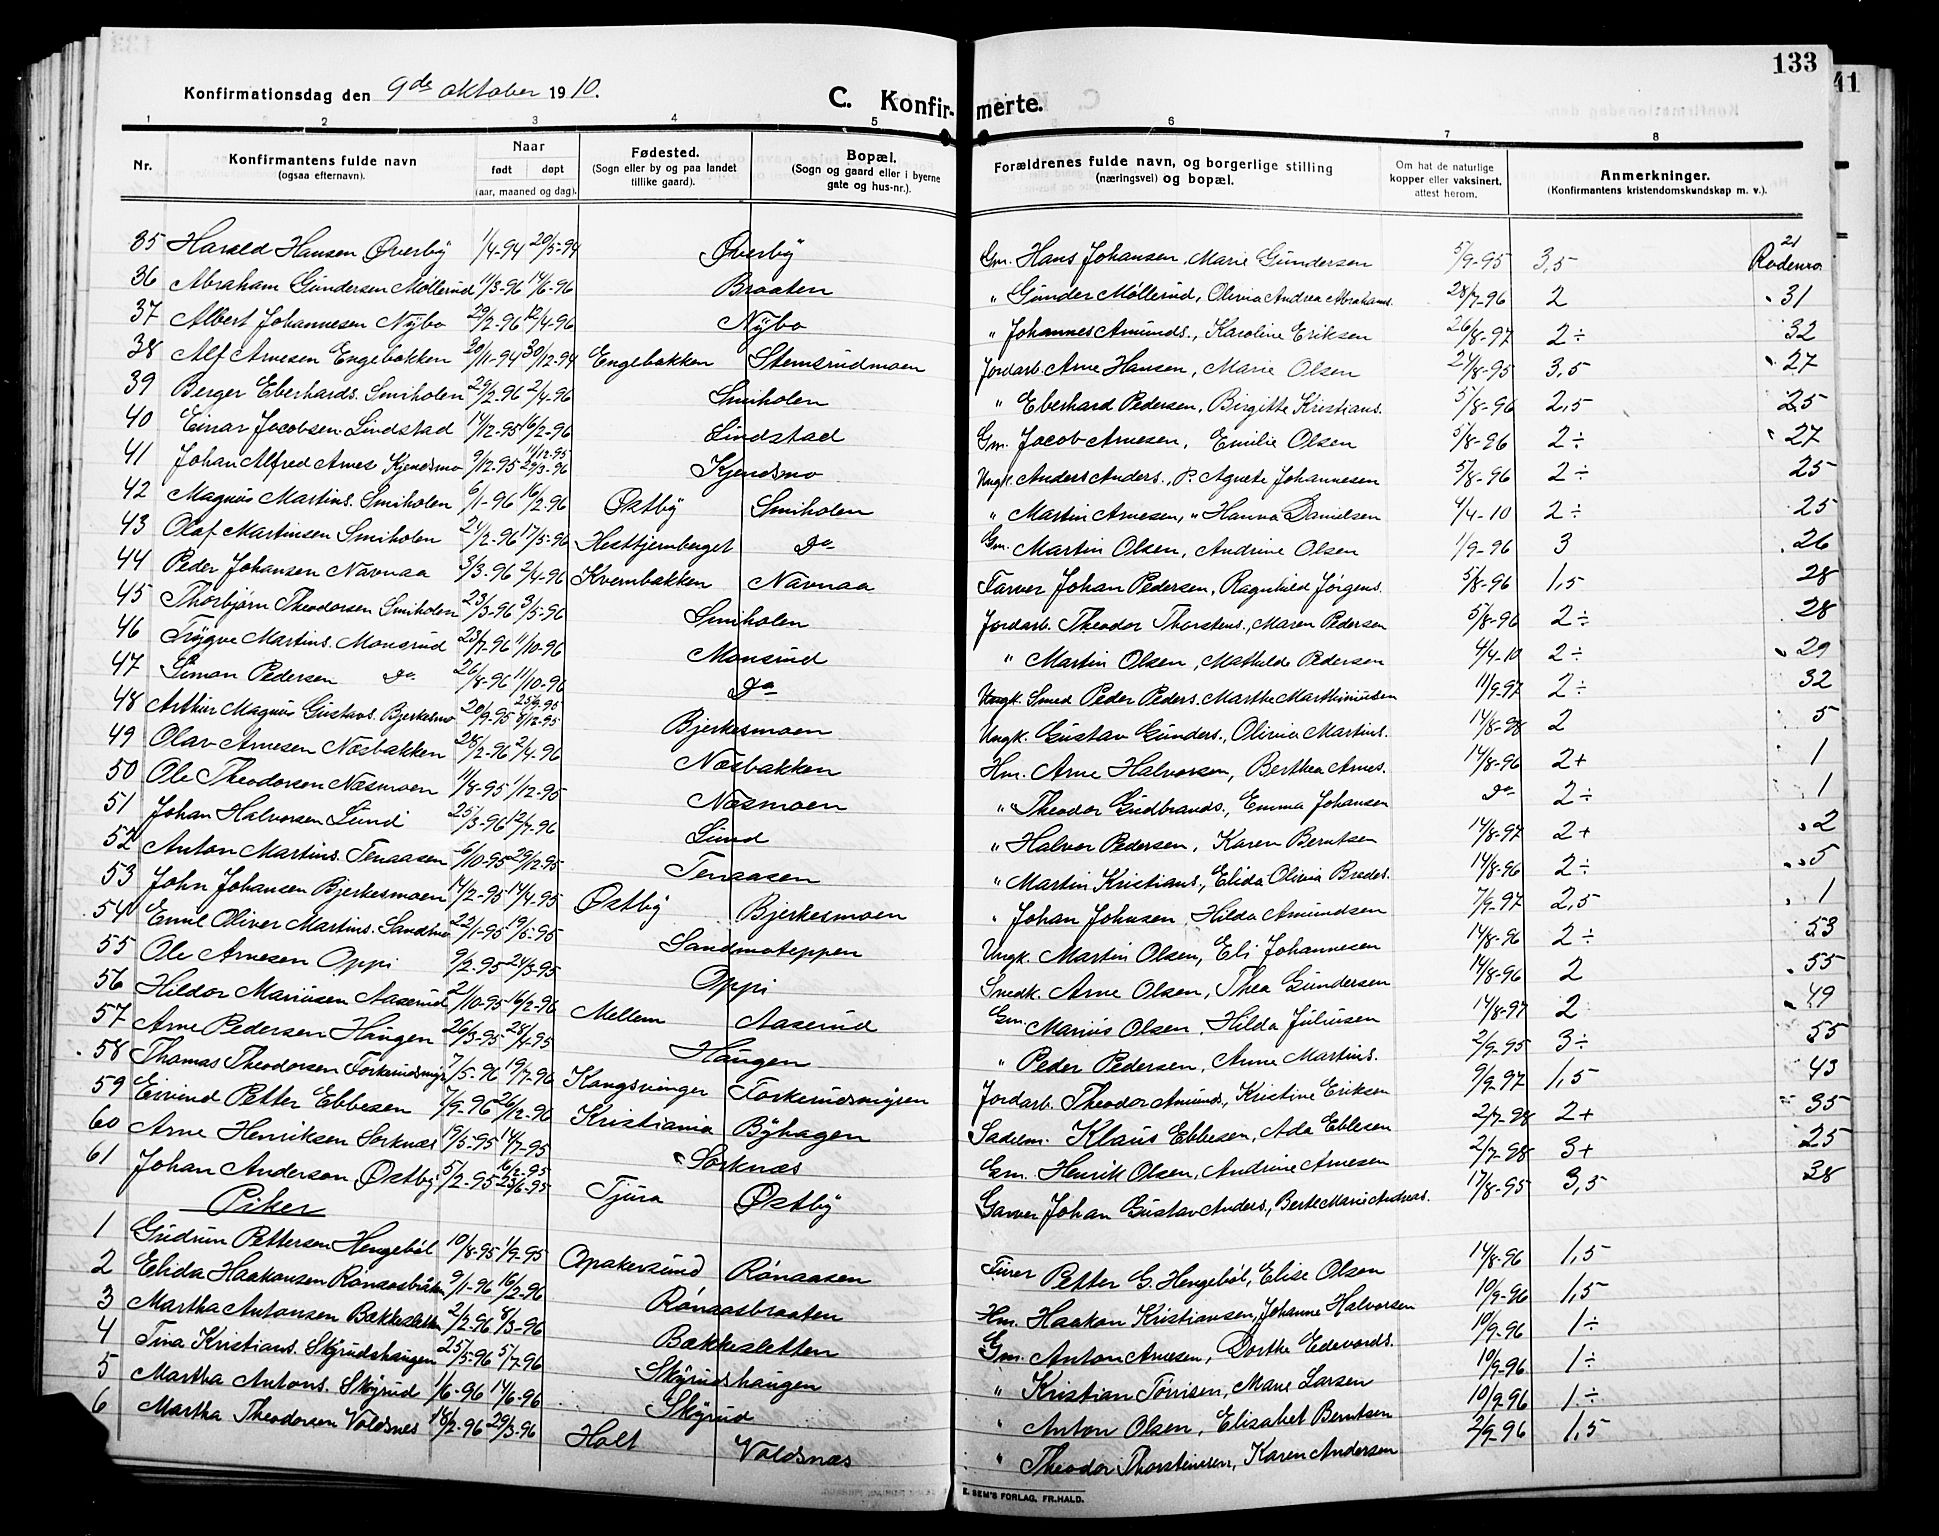 133
41
Konfirmationsdag den 9de oktober 1910.
C. Konfirmerte.
1 2 3 4 5 6 7 8
Nr. Konfirmantens fulde navn (ogsaa efternavn). Naar født døpt (aar, maaned og dag). Fødested. (Sogn eller by og paa landet tillike gaard). Bopæl. (Sogn og gaard eller i byerne gate og hus-nr.). Forældrenes fulde navn, og borgerlige stilling (næringsvei) og bopæl. Om hat de naturlige kopper eller vaksinert, attest herom. Anmerkninger. (Konfirmantens kristendomskundskap m. v.).
35 Harald Hansen Øverby 1/4-94 20/5-94 Øverby Gm. Hans Johansen, Marie Gundersen 5/9-95 3,5 21 Rødenes
36 Abraham Gundersen Møllerud 11/3-96 14/6-96 Braaten " Gunder Møllerud, Olivia Andrea Abrahams. 28/7-96 2 31
37 Albert Johannesen Nybo 29/2-96 12/4-96 Nybo " Johannes Amunds., Karoline Eriksen 26/8-97 2÷ 32
38 Alf Arnesen Engebakken 20/11-94 30/12-94 Engebakken Stemsrudmoen Jordarb. Arne Hansen, Marie Olsen 24/8-95 3,5 27
39 Berger Eberhards. Smiholen 29/2-96 2/4-96 Smiholen " Eberhard Pedersen, Birgitte Kristians. 5/8-96 2,5 25
40 Einar Jacobsen Lindstad 17/12-95 16/2-96 Lindstad Gm. Jacob Arnesen, Emilie Olsen 5/8-96 2÷ 27
41 Johan Alfred Arnes Kjendsmo 9/12-95 11/12-95 29/3-96 Kjendsmo Ungk. Anders Anders., P. Agnete Johannesen 5/8-96 2÷ 25
42 Magnus Martins. Smiholen 6/1-96 16/2-96 Østby Smiholen " Martin Arnesen, " Hanna Danielsen 4/4-10 2÷ 25
43 Olaf Martinsen Smiholen 24/2-96 17/5-96 Hestbjernberget do Gm. Martin Olsen, Andrine Olsen 1/9-96 3 26
44 Peder Johansen Navnaa 3/3-96 2/4-96 Kvernbakken Navnaa Farver Johan Pedersen, Ragnhild Jørgens. 5/8-96 1,5 28
45 Thorbjørn Theodorsen Smiholen 23/3-96 3/5-96 Smiholen Jordarb. Theodor Thorstens., Maren Pedersen 5/8-96 2÷ 28
46 Trygve Martins. Monsrud 23/7-96 11/10-96 Monsrud " Martin Olsen, Mathilde Pedersen 4/4-10 2÷ 29
47 Simon Pedersen do 26/8-96 11/10-96 do Ungk. Smed Peder Peders. Marthe Marthiniusen 11/9-97 2÷ 32
48 Arthur Magnus Gustavs. Bjerkesmo 20/9-95 25/9-95 8/12-95 Bjerkesmoen Ungk. Gustav Gunders., Olivia Martins. 14/8-98 2 5
49 Olav Arnesen Næsbakken 28/2-96 2/4-96 Næsbakken Hm. Arne Halvorsen, Berthea Arnes. 14/8-96 2+ 1
50 Ole Theodorsen Næsmoen 11/8-95 1/12-95 Næsmoen " Theodor Gudbrands., Emma Johansen do 2÷ 1
51 Johan Halvorsen Lund 25/3-96 12/7-96 Lund " Halvor Pedersen, Karen Berntsen 14/8-97 2+ 2
52 Anton Martins. Tenaasen 6/10-95 29/12-95 Tenaasen " Martin Kristians., Elida Olivia Bredes. 14/8-96 2÷ 5
53 John Johansen Bjerkesmoen 14/2-95 14/4-95 Østby Bjerkesmoen " Johan Johnsen, Hilda Amundsen 7/9-97 2,5 1
54 Emil Oliver Martins. Sandmo 22/1-95 19/5-95 Sandmoteppen Ungk. Martin Olsen, Eli Johannesen 14/8-96 2÷ 53
55 Ole Arnesen Oppi 9/2-95 24/3-95 Oppi Snedk. Arne Olsen, Thea Gundersen 14/8-96 2 55
56 Hildor Mariusen Aaserud 2/10-95 16/2-96 Mellem Aaserud Gm. Marius Olsen, Hilda Juliusen 14/8-97 2 49
57 Arne Pedersen Haugen 26/3-95 28/4-95 Haugen " Peder Pedersen, Anne Martins. 2/9-95 3÷ 55
58 Thomas Theodorsen Torkerudmyr 7/5-96 19/7-96 Kongsvinger Torkerudsmyren Jordarb. Theodor Amunds, Kristine Eriksen 9/9-97 1,5 43
59 Eivind Petter Ebbesen 7/9-96 26/12-96 Kristiania Byhagen Sadelm. Klaus Ebbesen, Ada Ebbesen 2/7-98 2+ 35
60 Arne Henriksen Sorknæs 19/5-95 14/7-95 Sorknæs Gm. Henrik Olsen, Andrine Arnesen 2/7-98 3+ 25
61 Johan Andersen Østby 5/2-95 6/2-95 23/6-95 Tjura Østby Garver Johan Gustav Anders., Berte Marie Andreas. 17/8-95 3,5 38
Piker
1 Gudrun Pettersen Hengebøl 10/8-95 1/9-95 Opakersund Rønaasen Furer Petter G. Hengebøl, Elise Olsen 14/8-96 1,5
2 Elida Haakonsen Rønaasbråten 9/1-96 16/2-96 Rønaasbraaten Hm. Haakon Kristiansen, Johanne Halvorsen 10/9-96 1,5
3 Martha Antonsen Bakkesletten 2/2-96 8/3-96 Bakkesletten Gm. Anton Arnesen, Dorthe Edevards. 10/9-96 1÷
4 Tina Kristians. Skyrudshaugen 25/5-96 5/7-96 Skyrudshaugen " Kristian Tørrisen, Marie Larsen 10/9-96 1÷
5 Martha Antons. Skyrud 1/6-96 14/6-96 Skyrud " Anton Olsen, Elisabet Berntsen 10/9-96 1÷
6 Martha Theodorsen Voldsnes 18/2-96 29/3-96 Holt Voldsnæs " Theodor Thorstensen, Karen Andersen 2/9-96 1,5
E. SEM'S FORLAG, FR.HALD.